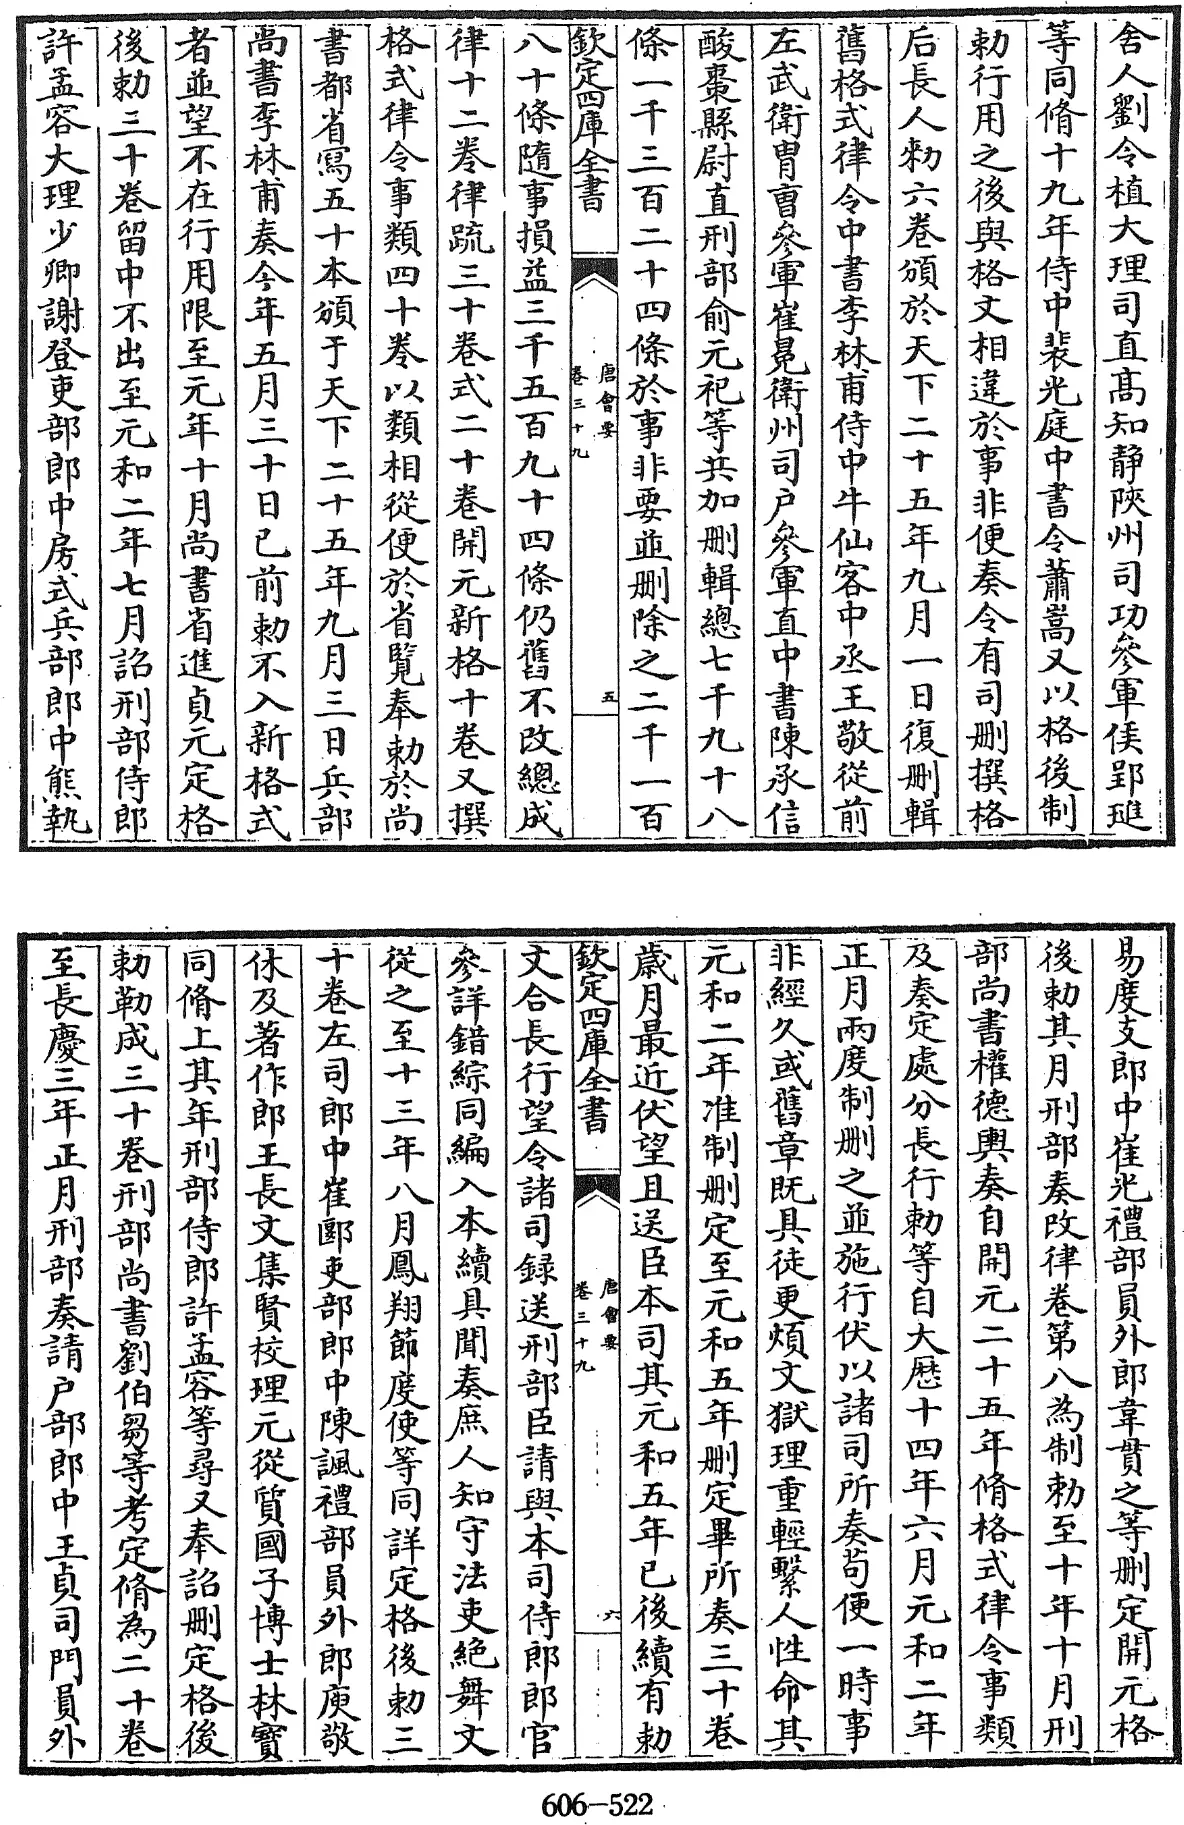 舍人劉令植大理司直髙知静陝州司功參軍侯郢璡
等同脩十九年侍中裴光庭中書令蕭嵩又以格後制
勅行用之後與格文相違於事非便奏令有司刪撰格
后長人勑六卷頒於天下二十五年九月一日復刪輯
舊格式律令中書李林甫侍中牛仙客中丞王敬從前
左武衛胄曹參軍崔晃衛州司户參軍直中書陳承信
酸棗縣尉直刑部俞元祀等共加刪輯總七千九十八
條一千三百二十四條於事非要並刪除之二千一百
欽定四庫全書
唐會要
卷三十九
五
八十條隨事損益三千五百九十四條仍舊不改總成
律十二卷律疏三十卷式二十卷開元新格十卷又撰
格式律令事類四十卷以類相從便於省覽奉勅於尚
書都省寫五十本頒于天下二十五年九月三日兵部
尚書李林甫奏今年五月三十日已前勅不入新格式
者並望不在行用限至元年十月尚書省進貞元定格
後勅三十卷留中不出至元和二年七月詔刑部侍郎
許孟容大理少卿謝登吏部郎中房式兵部郎中熊執
易度支郎中崔光禮部員外郎韋貫之等刪定開元格
後勅其月刑部奏改律卷第八為制勅至十年十月刑
部尚書權德輿奏自開元二十五年脩格式律令事類
及奏定處分長行勅等自大厯十四年六月元和二年
正月兩度制刪之並施行伏以諸司所奏苟便一時事
非經久或舊章既具徒更煩文獄理重輕繫人性命其
元和二年准制刪定至元和五年刪定畢所奏三十卷
歲月最近伏望且送臣本司其元和五年已後續有勅
欽定四庫全書
唐會要
卷三十九
六
文合長行望令諸司録送刑部臣請與本司侍郎郎官
參詳錯綜同編入本續具聞奏庶人知守法吏絶舞文
從之至十三年八月鳳翔節度使等同詳定格後勅三
十卷左司郎中崔郾吏部郎中陳諷禮部員外郎庾敬
休及著作郎王長文集賢校理元從質國子博士林寳
同脩上其年刑部侍郎許孟容等尋又奉詔刪定格後
勅勒成三十卷刑部尚書劉伯芻等考定脩為二十卷
至長慶三年正月刑部奏請户部郎中王貞司門員外
606—522